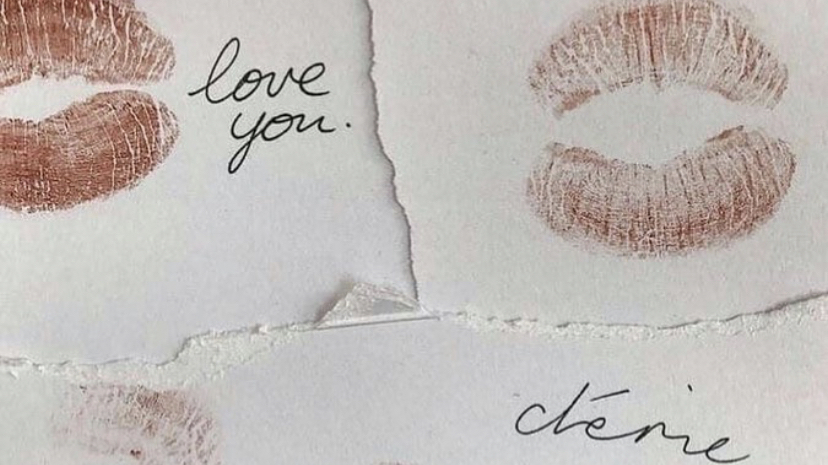 love
you.
chérie